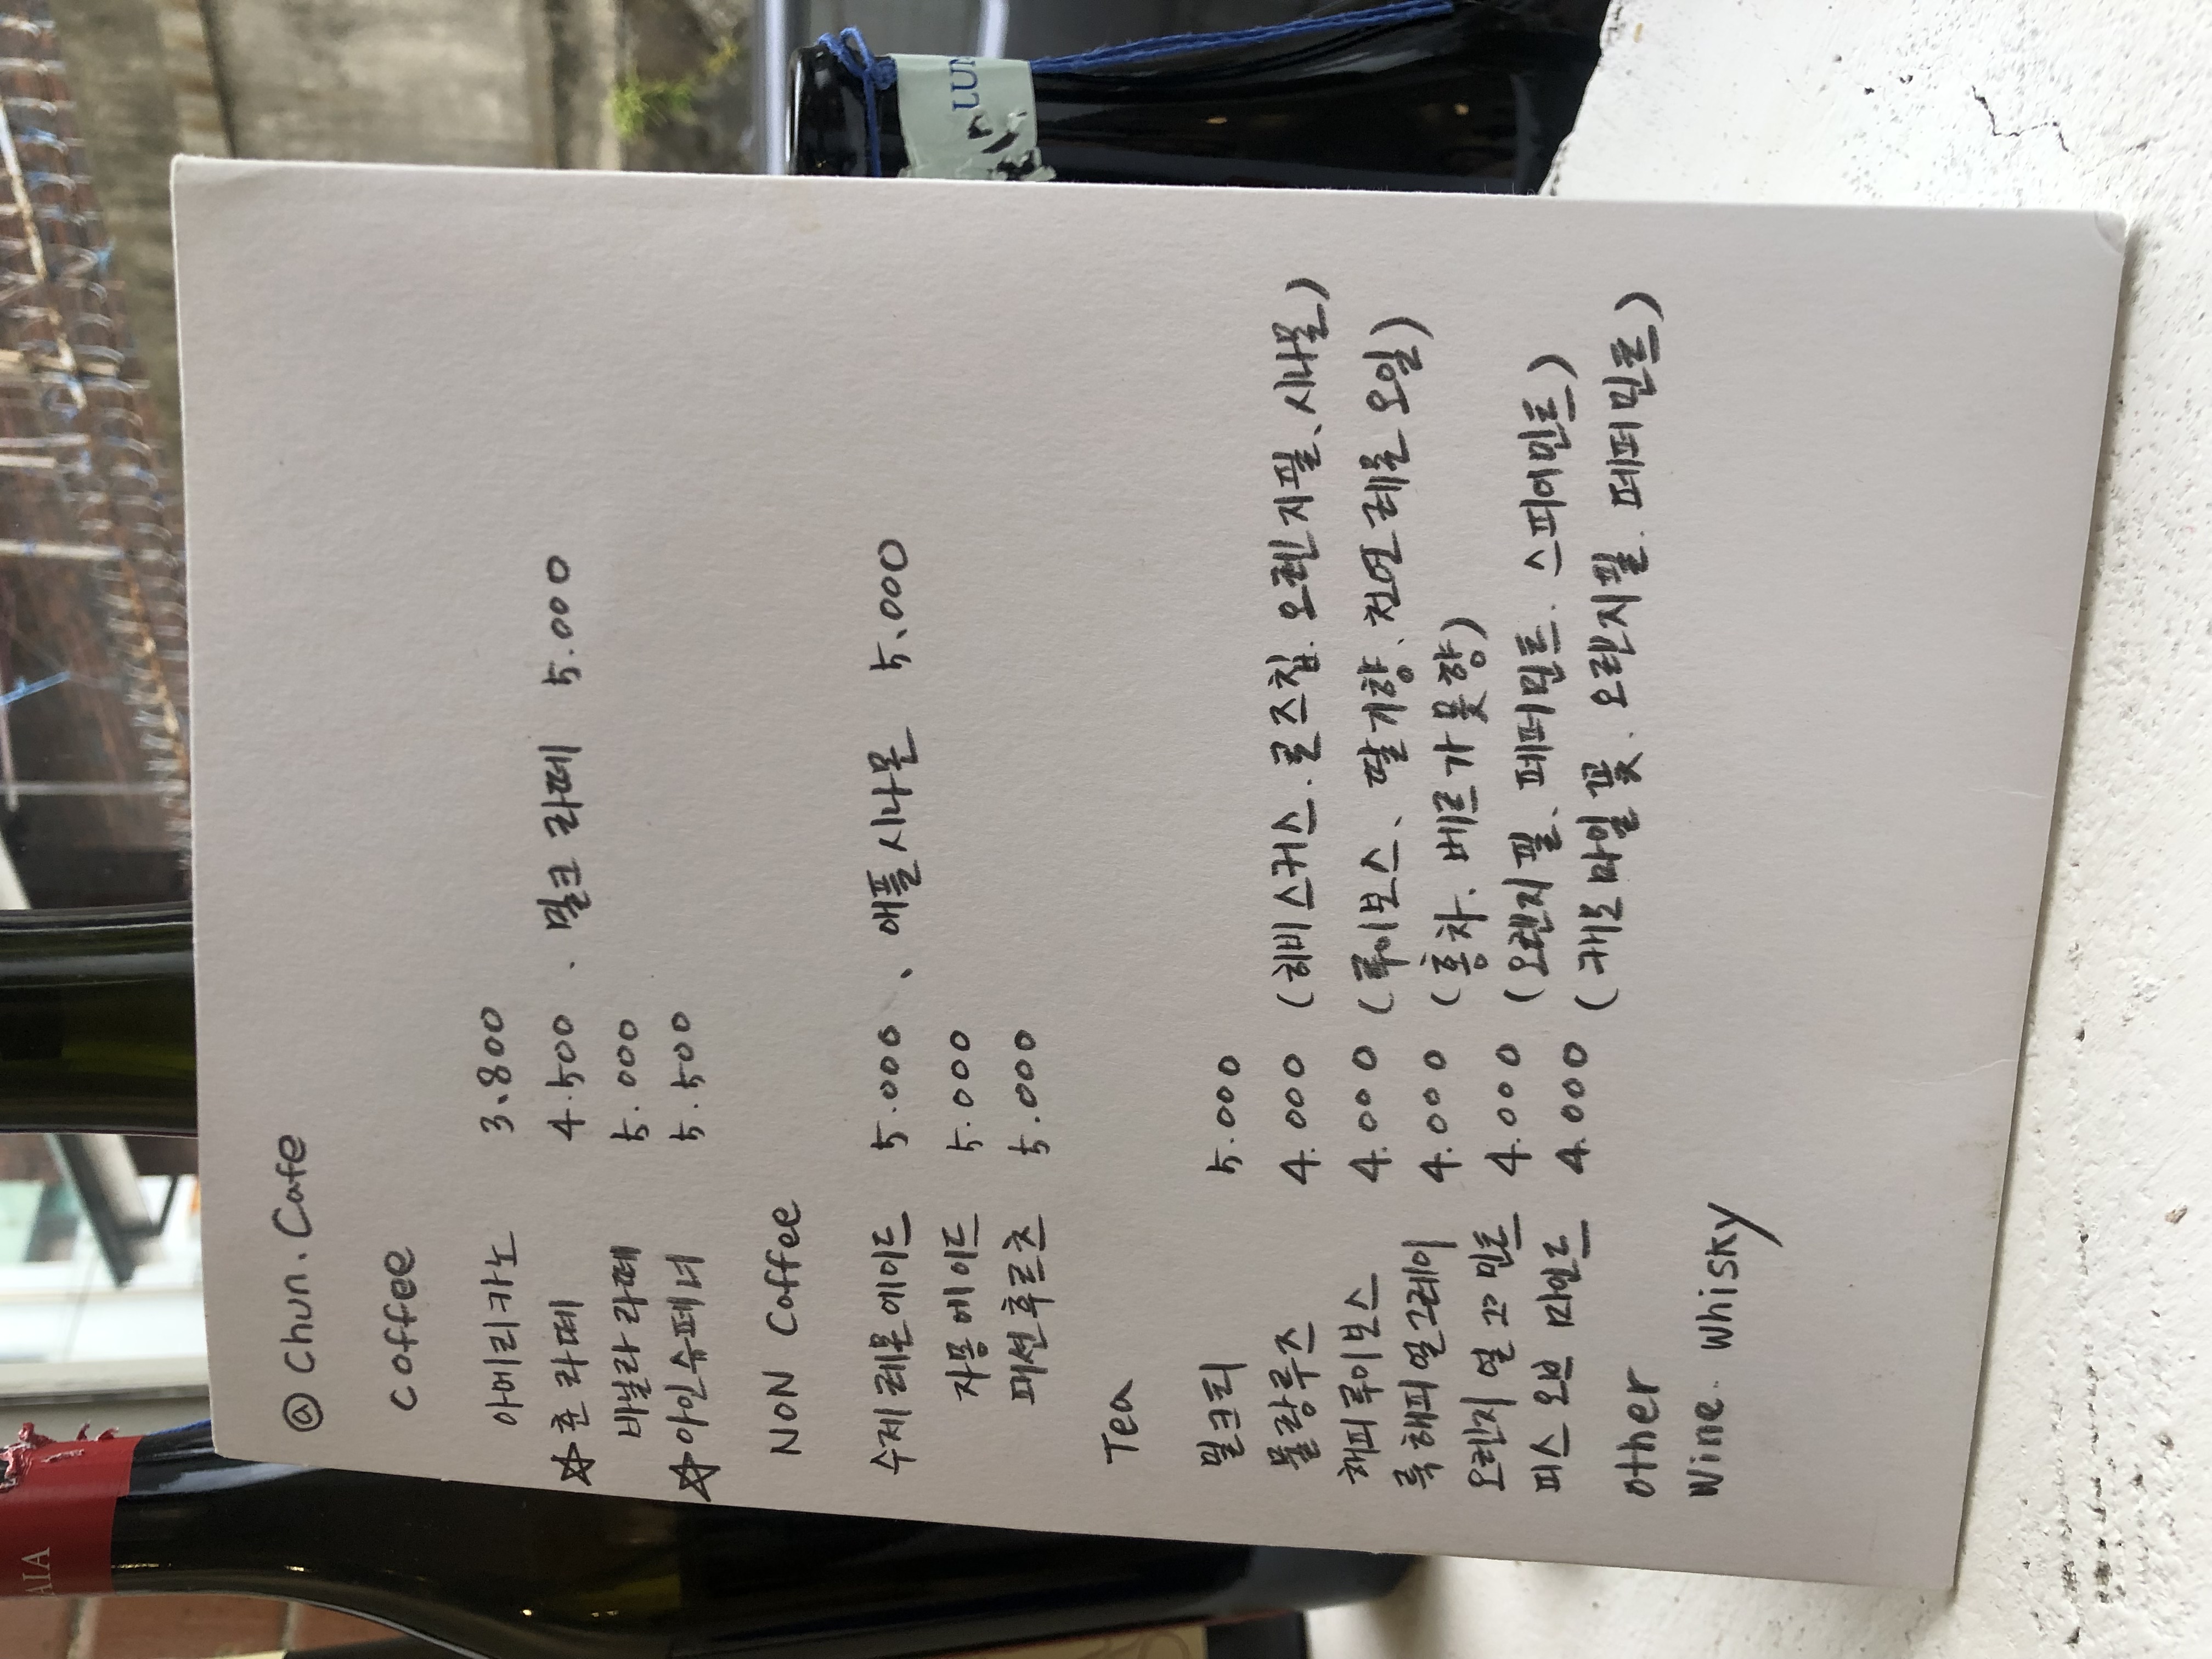 @ Chun.Cafe
Coffee
아메리카노 3.800
☆ 춘 라떼 4.500 . 밀크 라떼 5.000
바닐라 라떼 5.000
☆ 아인슈페너 5.500
NON Coffee
수제 레몬에이드 5.000 、 애플시나몬 5.000
자몽에이드 5.000
패션후르츠 5.000
Tea
밀크티 5.000
물랑루즈 4.000 (히비스커스. 로즈힙. 오렌지필、시나몬)
해피 루이보스 4.000 (루이보스、딸기향、천연 레몬 오일)
룩해피 얼그레이 4.000 (홍차. 베르가못향)
오렌지 얼 끄 민트 4.000 (오렌지 필、페퍼민트. 스피어민트)
피스 오브 마인드 4.000 (캐모마일 꽃. 오렌지필. 페퍼민트)
Other
Wine. Whisky
LUN
AIA